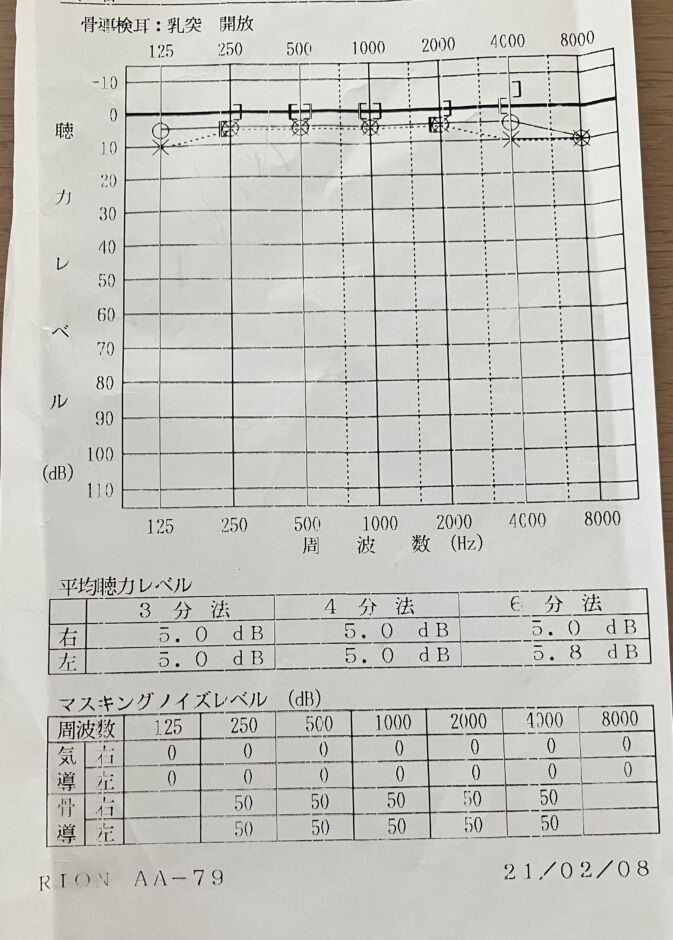 骨導検耳：乳突 開放
125 250 500 1000 2000 4000 8000
-10
0
10
20
30
40
50
60
70
80
90
100
110
聴力レベル (dB)
125 250 500 1000 2000 4000 8000
周波数 (Hz)
平均聴力レベル
3分法 4分法 6分法
右 5.0 dB 5.0 dB 5.0 dB
左 5.0 dB 5.0 dB 5.8 dB
マスキングノイズレベル (dB)
周波数 125 250 500 1000 2000 4000 8000
気導 右 0 0 0 0 0 0 0
左 0 0 0 0 0 0 0
骨導 右 50 50 50 50 50
左 50 50 50 50 50
RION AA-79 21/02/08